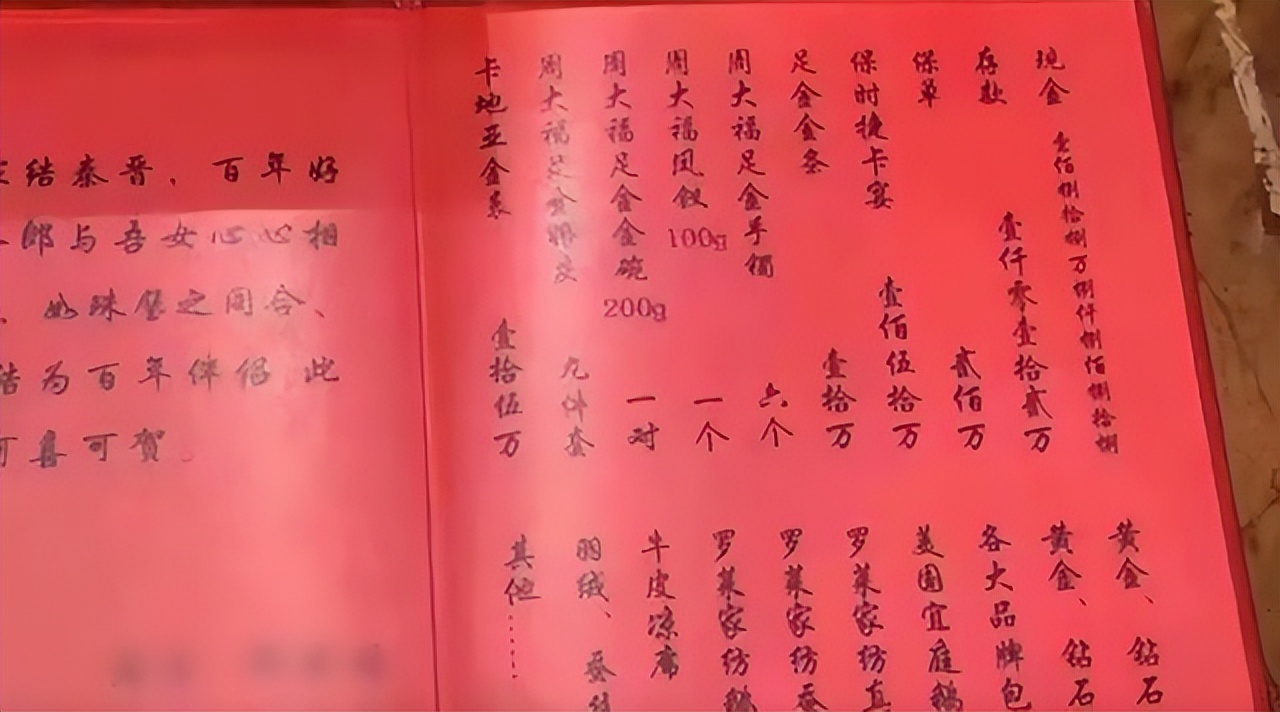 现金 壹佰捌拾捌万捌仟捌佰捌拾捌
存款 壹仟零壹拾贰万
保单 贰佰万
保时捷卡宴 壹佰伍拾万
足金金条 壹拾万
周大福足金手镯 六个
周大福凤钗 100g 一个
周大福足金金碗 200g 一对
周大福足金 九件套
卡地亚金表 壹拾伍万
黄金、钻石
黄金、钻石
各大品牌包
美国宜庭鹅
罗莱家纺真
罗莱家纺蚕
罗莱家纺鹅
牛皮凉席
羽绒、蚕丝
其他……
结秦晋、百年好
郎与吾女心心相
、如珠璧之同合、
结为百年伴侣 此
可喜可贺。